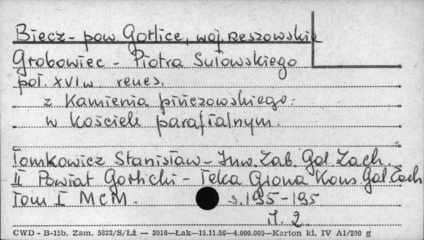 Biecz - pow Gorlice, woj. rzeszowskie
Grobowiec - Piotra Sułowskiego
poł. XVI w renes.
z Kamienia pińczowskiego.
w kościele parafialnym.
Tomkowicz Stanisław - Inw. Zab. Gal Zach.
II Powiat Gorlicki - Teka Grona Kons. Gal Zach
Tom I MCM. s. 195-195
J. 2.
CWD - B-15b. Zam. 5823/S/Łż — 2016—Łak—15.11.56—4.000.000—Karton kl. IV A1/290 g